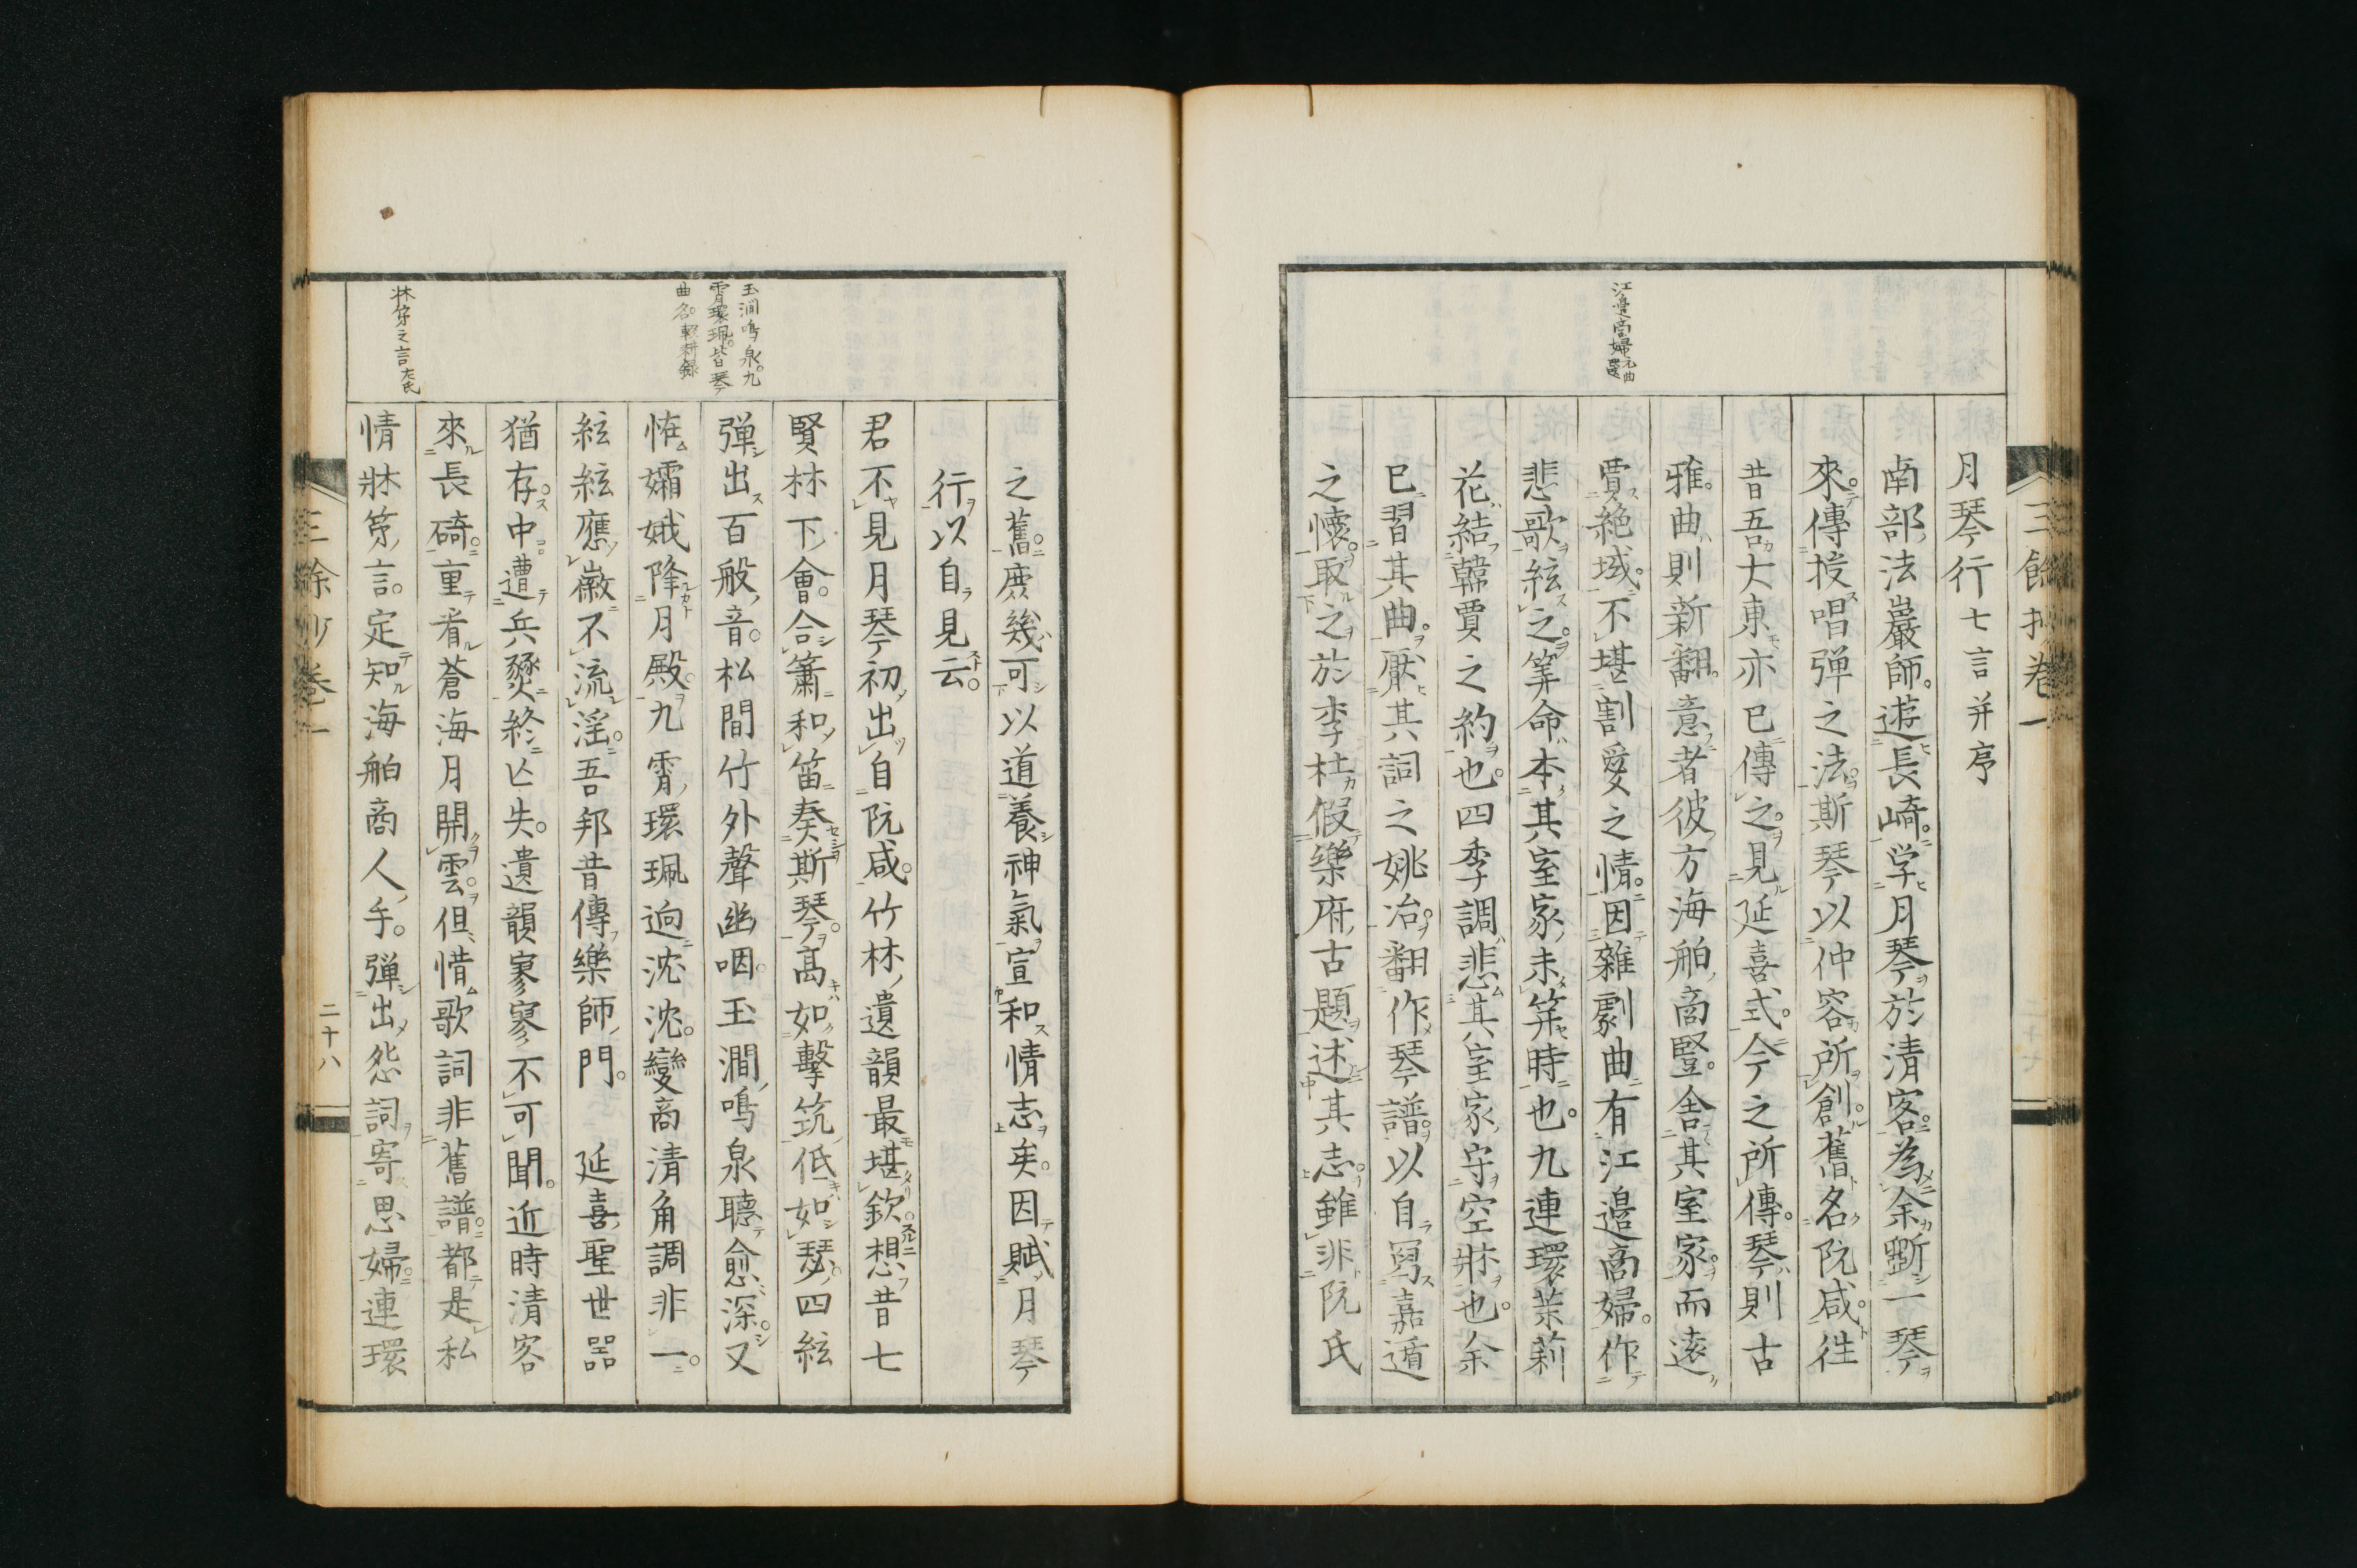 三餘抄卷一
月琴行七言并序
南部法巖師遊長崎学月琴於清客為余斲一琴
來傳授唱弾之法斯琴以仲容所創舊名阮咸徃
昔吾大東亦已傳之見延喜式今之所傳琴則古
雅曲則新翻意者彼方海舶商豎舎其室家而遠
賈絶域不堪割愛之情因雜劇曲有江邉商婦作
悲歌絃之筭命本其室家未笄時也九連環茉莉
花結韓賈之約也四季調悲其室家守空牀也余
已習其曲厭其詞之姚冶翻作琴譜以自冩嘉遁
之懷取之於李杜假樂府古題述其志雖非阮氏
江邉商婦元曲選
之舊庶幾可以道養神氣宣和情志矣因賦月琴
行以自見云
君不見月琴初出自阮咸竹林遺韻最堪欽想昔七
賢林下會合簫和笛奏斯琴高如擊筑低如瑟四絃
弾出百般音松間竹外聲幽咽玉澗鳴泉聽愈深又
恠孀娥降月殿九霄環珮逈沈沈變商清角調非一
絃絃應徽不流淫吾邦昔傳樂師門 延喜聖世器
猶存中遭兵燹終亾失遺韻寥寥不可聞近時清客
來長碕重看蒼海月開雲但惜歌詞非舊譜都是私
情牀笫言定知海舶商人手弾出怨詞寄思婦連環
玉澗鳴泉九
霄環珮皆琴
曲名輟耕録
牀笫之言左氏
三餘抄卷一
二十八